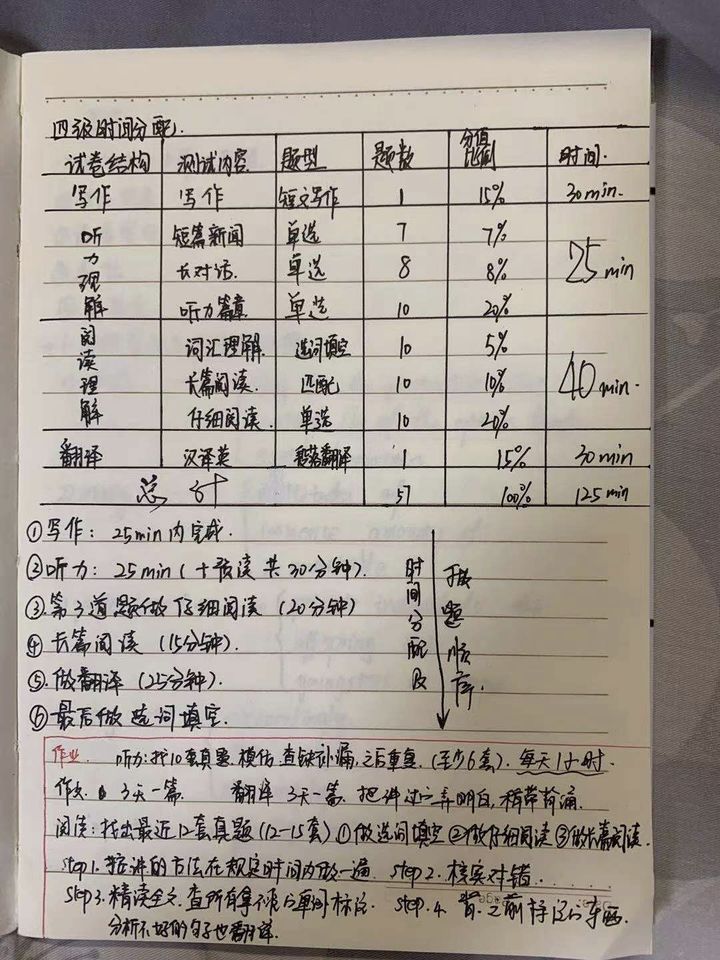 四级时间分配.
试卷结构 测试内容 题型 题数 分值比例 时间.
写作 写作 短文写作 1 15% 30min.
听力理解 短篇新闻 单选 7 7% 25min
长对话 单选 8 8%
听力篇章 单选 10 20%
阅读理解 词汇理解 选词填空 10 5% 40min.
长篇阅读. 匹配 10 10%
仔细阅读. 单选 10 20%
翻译 汉译英 段落翻译 1 15% 30min
总计 57 100% 125min
①写作: 25min内完成.
②听力: 25min(十 读 共30分钟).
③.第3道题做仔细阅读(20分钟)
④长篇阅读(15分钟).
⑤.做翻译(25分钟).
⑥最后做选词填空.
时间分配及
做题顺序.
作业. 听力:找10套真题.模仿.查缺补漏,之后重复.(至少6套).每天1小时.
作文. 3天一篇. 翻译 3天一篇. 把讲过 弄明白,稍带背诵.
阅读:找出最近12套真题(12-15套)①做选词填空②做仔细阅读③做长篇阅读.
step1.按讲的方法在规定时间内做一遍. step2.核实对错.
step3.精读全文.查所有拿不准的单词标注. step.4. 背.之前标记的东西.
分析不好的句子也翻译.